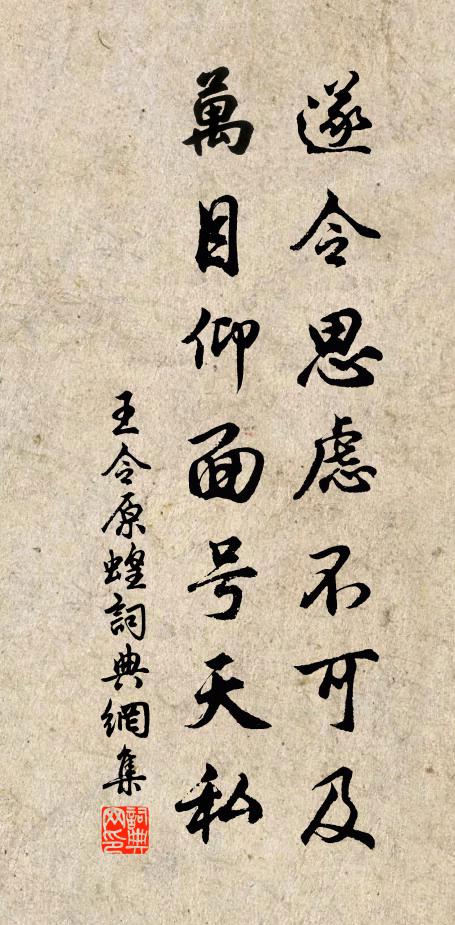 遂令思虑不可及
萬目仰面号天私
王令原蝗詞典網集
詞典
网印